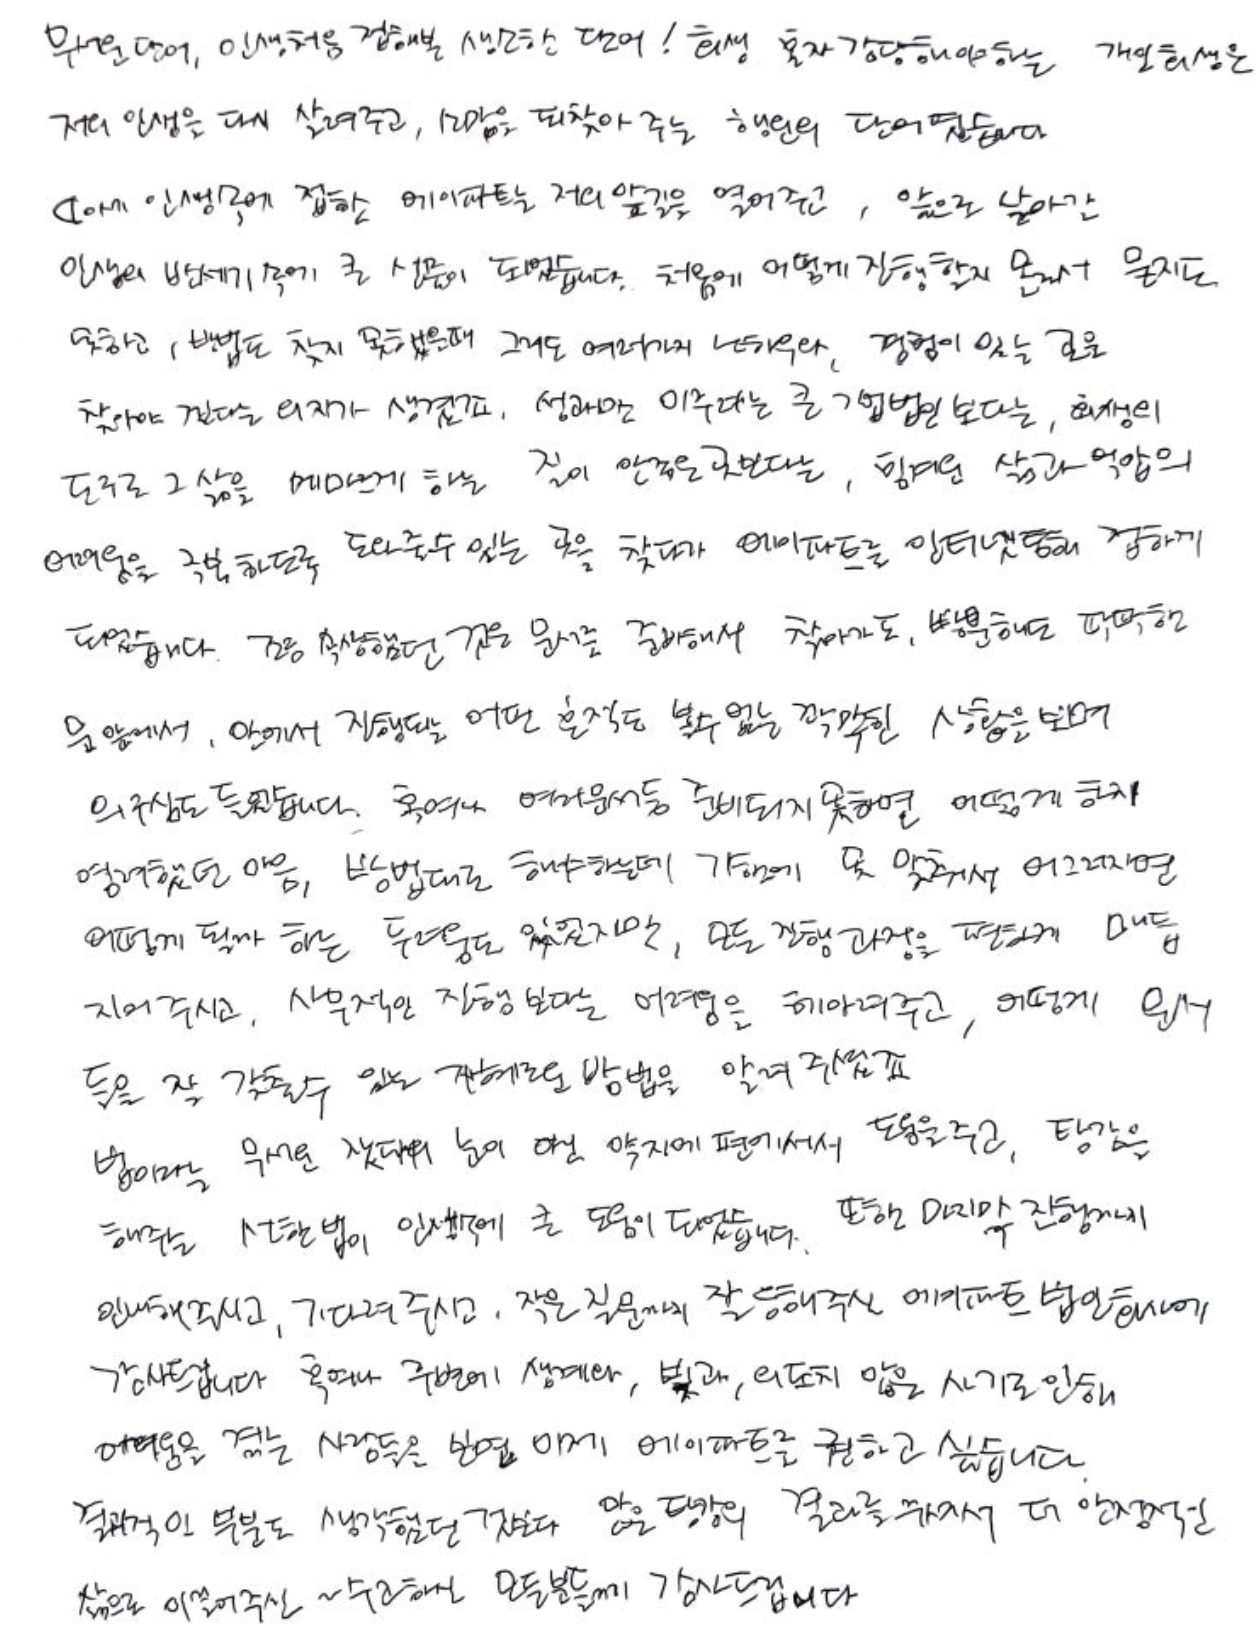 무거운 단어, 인생처음 접해본 생소한 단어! 회생 혼자 감당해야하는 개인회생은
저의 인생을 다시 살려주고, 마음을 되찾아 주는 행운의 단어였습니다
인생속에 접한 에이파트는 저의 앞길을 열어주고, 앞으로 날아간
인생의 반세기 속에 큰 선물이 되었습니다. 처음에 어떻게 진행할지 몰라서 묻지도
못하고, 방법도 찾지 못했을때 그래도 여러가지 경험이 있는 곳을
찾아야 겠다는 의지가 생겼고요. 성과만 이루다는 큰 기업법인 보다는, 회생의
도구로 그 삶을 메마르게 하는 질이 안좋은 곳보다는, 힘겨운 삶과 억압의
어려움을 극복하도록 도와줄수 있는 곳을 찾다가 에이파트를 인터넷통해 접하게
되었습니다. 가장 속상했던 것은 문서를 준비해서 찾아가도, 방문해도 딱딱한
문 앞에서, 안에서 진행되는 어떤 흔적도 볼수 없는 꽉막힌 상황을 보며
의구심도 들었습니다. 혹여나 여러문서등 준비되지 못하면 어떻게 할지
염려했던 마음, 방법대로 해야하는데 기한에 못 맞춰서 어그러지면
어떻게 될까 하는 두려움도 있었지만, 모든 진행과정을 편하게 매듭
지어 주시고, 사무적인 진행보다는 어려움을 헤아려주고, 어떻게 문서
들을 잘 갖출수 있는 지혜로운 방법을 알려 주셨고요
법이라는 무서운 잣대의 눈이 아닌 약자에 편에서서 도움을 주고, 탕감을
해주는 선한법이 인생속에 큰 도움이 되었습니다. 또한 마지막 진행까지
인내해주시고, 기다려 주시고, 작은 질문까지 잘 응해주신 에이파트 법인회사에
감사드립니다 혹여나 주변에 생계와, 빚과, 의도치 않은 사기로 인해
어려움을 겪는 사람들은 반면 이제 에이파트를 권하고 싶습니다.
결과적인 부분도 생각했던 것보다 많은 탕감의 결과를 주셔서 더 안정적인
삶으로 이끌어주신 ~수고하신 모든분들께 감사드립니다